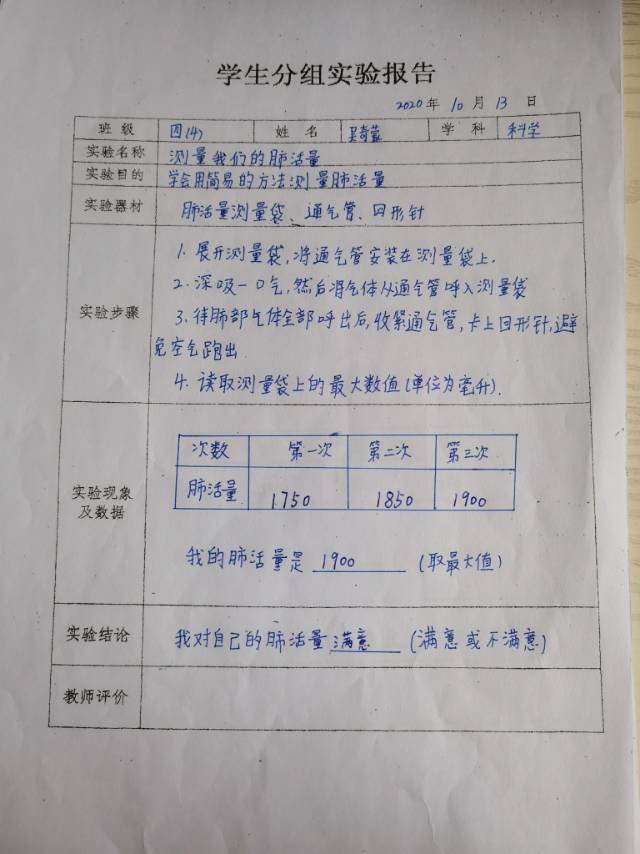 学生分组实验报告
2020年 10月 13日
班级 四(4) 姓名 学科 科学
实验名称 测量我们的肺活量
实验目的 学会用简易的方法测量肺活量
实验器材 肺活量测量袋、通气管、回形针
实验步骤
1. 展开测量袋,将通气管安装在测量袋上.
2. 深吸一口气,然后将气体从通气管呼入测量袋
3. 待肺部气体全部呼出后,收紧通气管,卡上回形针,避
免空气跑出
4. 读取测量袋上的最大数值(单位为毫升).
实验现象
及数据
次数 第一次 第二次 第三次
肺活量 1750 1850 1900
我的肺活量是 1900 (取最大值)
实验结论 我对自己的肺活量满意 (满意或不满意)
教师评价